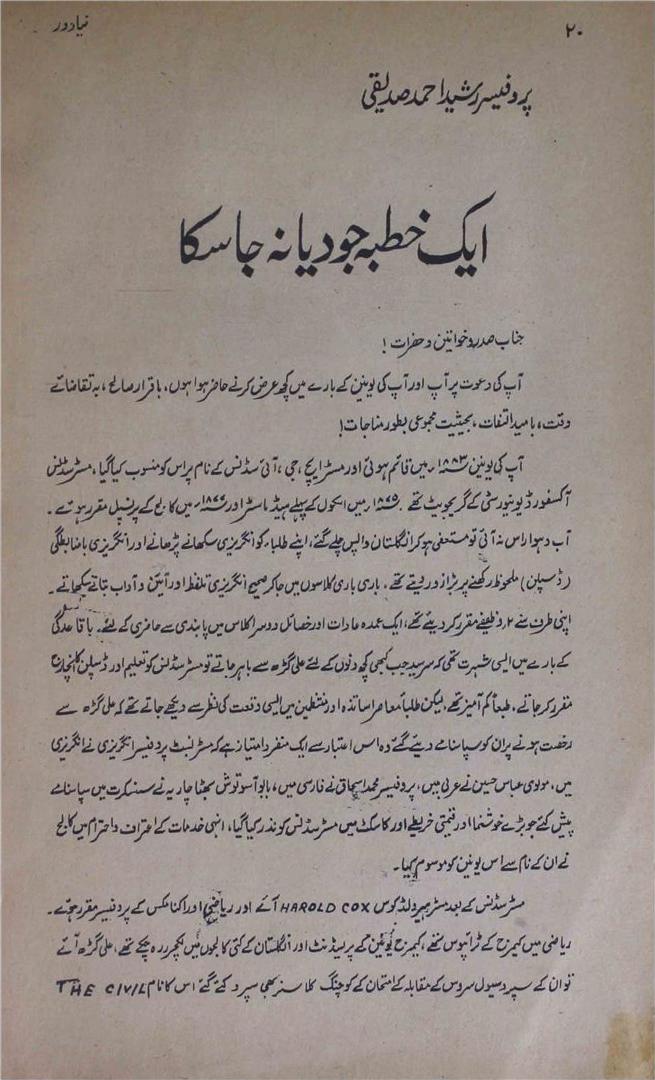 ۲۰
نیادور
پروفیسر رشید احمد صدیقی
ایک خطبہ جو دیا نہ جا سکا
جناب صدر و خواتین و حضرات !
آپ کی دعوت پر آپ اور آپ کی یونین کے بارے میں کچھ عرض کرنے حاضر ہوا ہوں، باقرار صالح، بہ تقاضائے
وقت، بامید التفات، بحیثیت مجموعی بطور مناجات!
آپ کی یونین ۱۸۸۳ء میں قائم ہوئی اور مسٹر ایچ، جی، آئی سڈنس کے نام پر اس کو منسوب کیا گیا، مسٹر سڈنس
آکسفورڈ یونیورسٹی کے گریجویٹ تھے ۱۸۷۵ء میں اسکول کے پہلے ہیڈ ماسٹر اور میں کالج کے پرنسپل مقرر ہوئے۔
آب و ہوا راس نہ آئی تو مستعفی ہو کر انگلستان واپس چلے گئے، اپنے طلباء کو انگریزی سکھانے پڑھانے اور انگریزی باضابطگی
(ڈسپلن) ملحوظ رکھنے پر بڑا زور دیتے تھے۔ باری باری کلاسوں میں جا کر صحیح انگریزی تلفظ اور آئین و آداب بتاتے سکھاتے۔
اپنی طرف سے ۲ وظیفے مقرر کر دیئے تھے، ایک عمدہ عادات اور خصائل دوسرا کلاس میں پابندی سے حاضری کے لئے۔ باقاعدگی
کے بارے میں ایسی شہرت تھی کہ سرسید جب کبھی کچھ دنوں کے لئے علی گڑھ سے باہر جاتے تو مسٹر سڈنس کو تعلیم اور ڈسپلن کا انچارج
مقرر کر جاتے، طبعاً کم آمیز تھے، لیکن طلبا معاصر اساتذہ اور منتظمین میں ایسی وقعت کی نظر سے دیکھے جاتے تھے کہ علی گڑھ سے
رخصت ہونے پر ان کو سپاسنامے دیئے گئے وہ اس اعتبار سے ایک منفرد امتیاز ہے کہ مسٹر نسبٹ پروفیسر انگریزی نے انگریزی
میں، مولوی عباس حسین نے عربی میں، پروفیسر محمد اسحاق نے فارسی میں، بابو آسوتوش بھٹاچاریہ نے سنسکرت میں سپاسنامے
پیش کئے جو بڑے خوشنما اور قیمتی خریطے اور کاسکٹ میں مسٹر سڈنس کو نذر کیا گیا، انہی خدمات کے اعتراف و احترام میں کالج
نے ان کے نام سے اس یونین کو موسوم کیا۔
مسٹر سڈنس کے بعد مسٹر ہیرولڈ کوس HAROLD COX آئے اور ریاضی اور اکنامکس کے پروفیسر مقرر ہوئے۔
ریاضی میں کیمرج کے ٹرائپوس تھے، کیمرج یونین کے پرسیڈنٹ اور انگلستان کے کئی کالجوں میں لکچرر رہ چکے تھے، علی گڑھ آئے
تو ان کے سپرد سیول سروس کے مقابلہ کے امتحان کے کوچنگ کلاسز بھی سپرد کئے گئے اس کا نام THE CIVIL